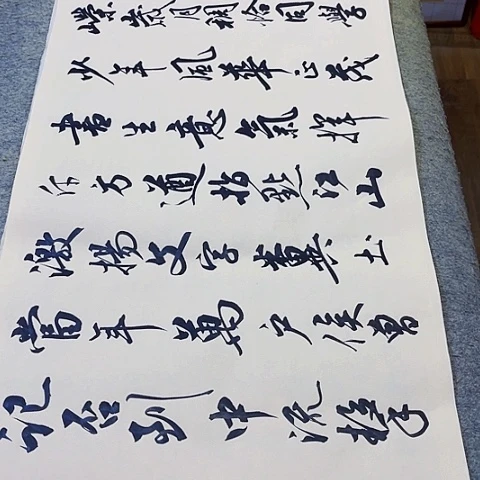 嶸歲月稠恰同學
少年風華正茂
書生意氣揮
斥方遒指點江山
激揚文字糞土
當年萬戶侯曾
記否到中流擊